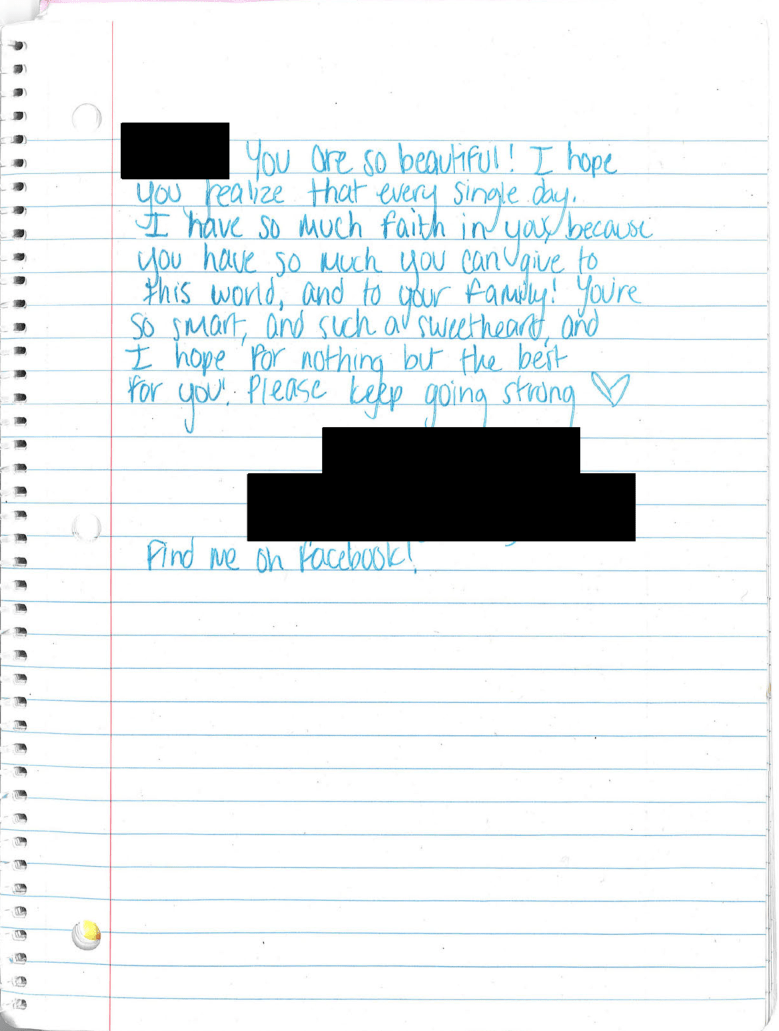 You are so beautiful! I hope
you realize that every single day.
I have so much faith in you, because
you have so much you can give to
this world, and to your family! You're
so smart, and such a sweetheart, and
I hope for nothing but the best
for you. Please keep going strong ♡
Find me on Facebook!